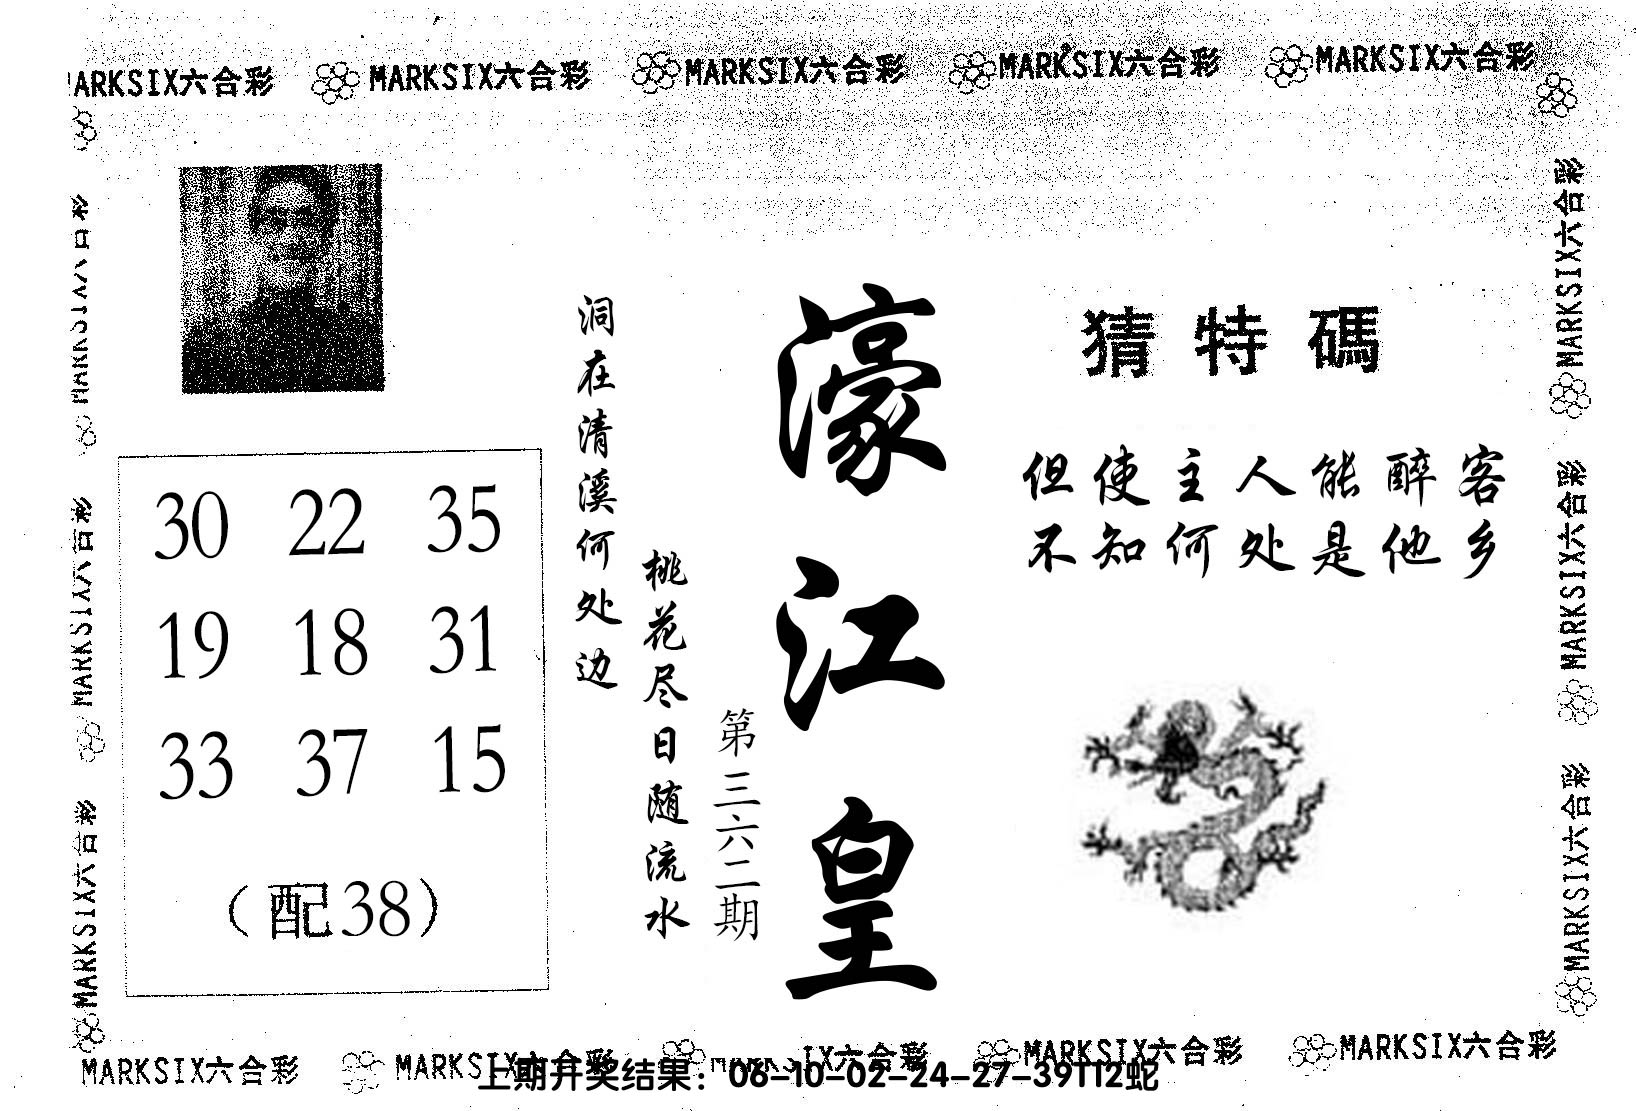 MARKSIX六合彩 MARKSIX六合彩 MARKSIX六合彩 MARKSIX六合彩
MARKSIX六合彩
猜特碼
但使主人能醉客
不知何处是他乡
濠江皇
第三六二期
桃花尽日随流水
洞在清溪何处边
30 22 35
19 18 31
33 37 15
（配38）
MARKSIX六合彩
MARKSIX六合彩
MARKSIX六合彩
MARKSIX六合彩
MARKSIX六合彩
MARKSIX六合彩 MARKSIX六合彩 MARKSIX六合彩 MARKSIX六合彩
上期开奖结果：06-10-02-24-27-39T12蛇